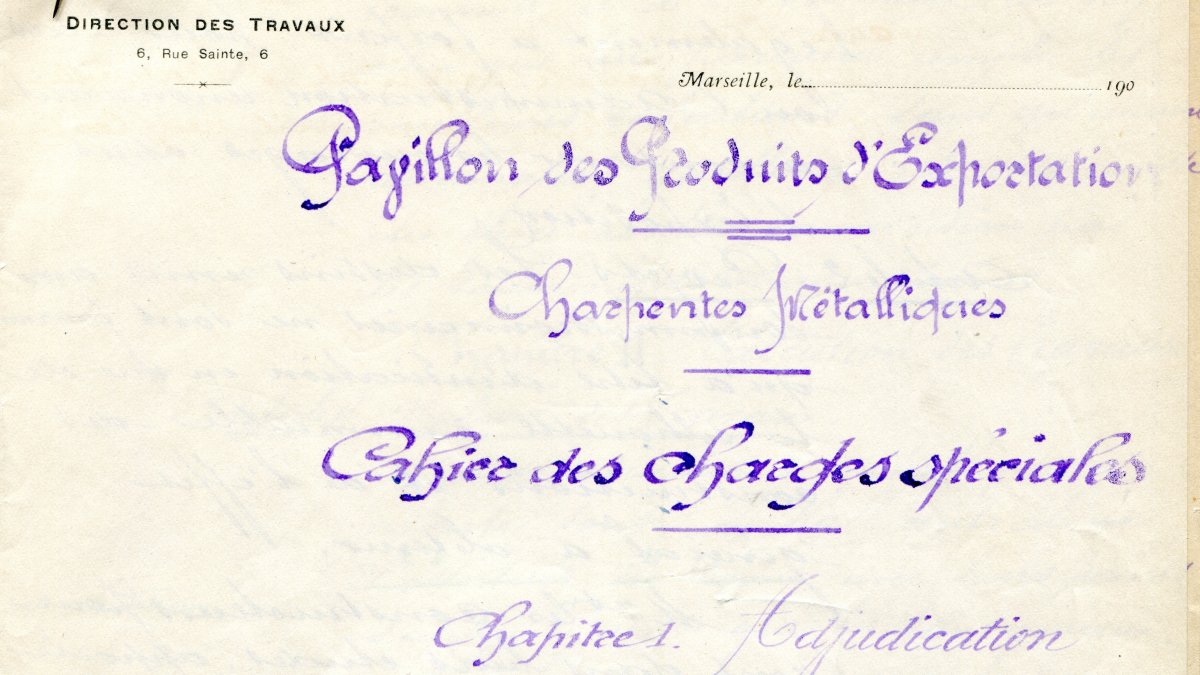 DIRECTION DES TRAVAUX
6, Rue Sainte, 6
Marseille, le 190
Papillon des Produits d'Exportation
Charpentes Métalliques
Cahier des charges spéciales
Chapitre 1. Adjudication